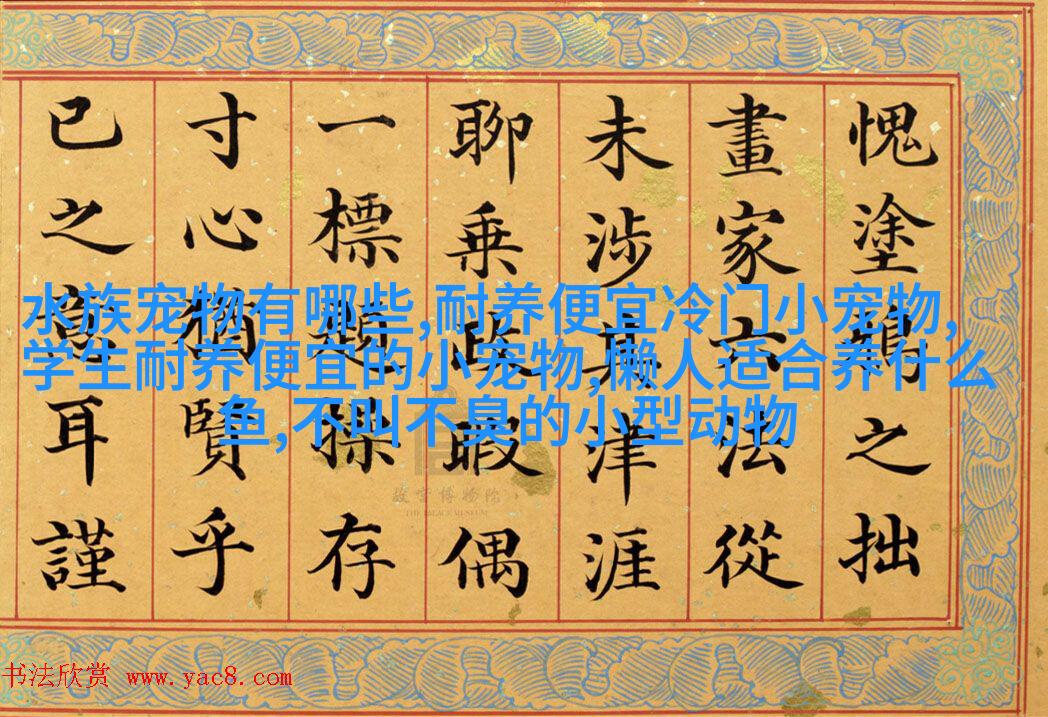 愧塗鴉之拙
畫家六法從
未涉其津涯
聊乘政暇偶
一標題操存
寸心猶賢乎
已之為耳謹
水族宠物有哪些,耐养便宜冷门小宠物,
学生耐养便宜的小宠物,懒人适合养什么
鱼,不叫不臭的小型动物
故宫博物院
THE PALACE MUSEUM
书法欣赏 www.yac8.com